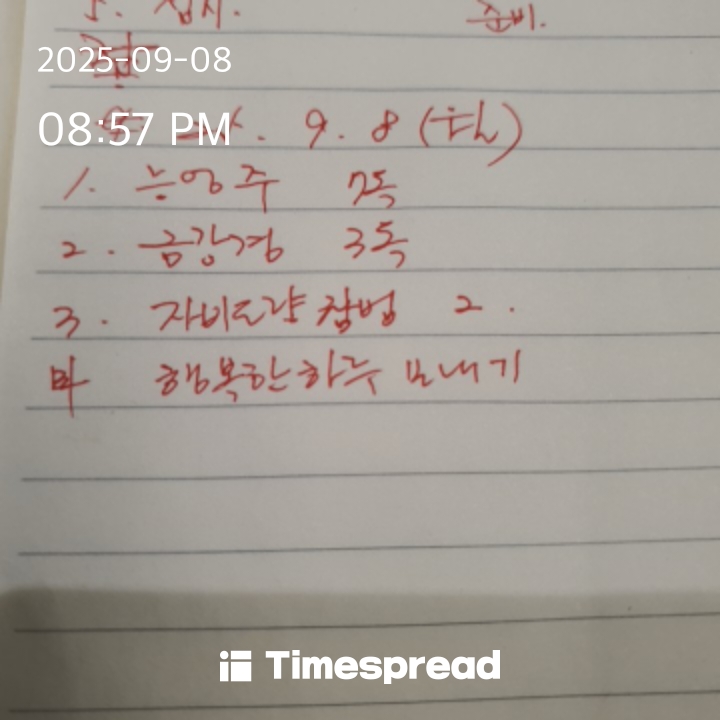 5. 접시. 준비.
2025-09-08
08:57 PM
9. 8 (월)
1. 능엄주 7독
2. 금강경 3독
3. 자비도량참법 2.
4 행복한 하루 보내기
Timespread